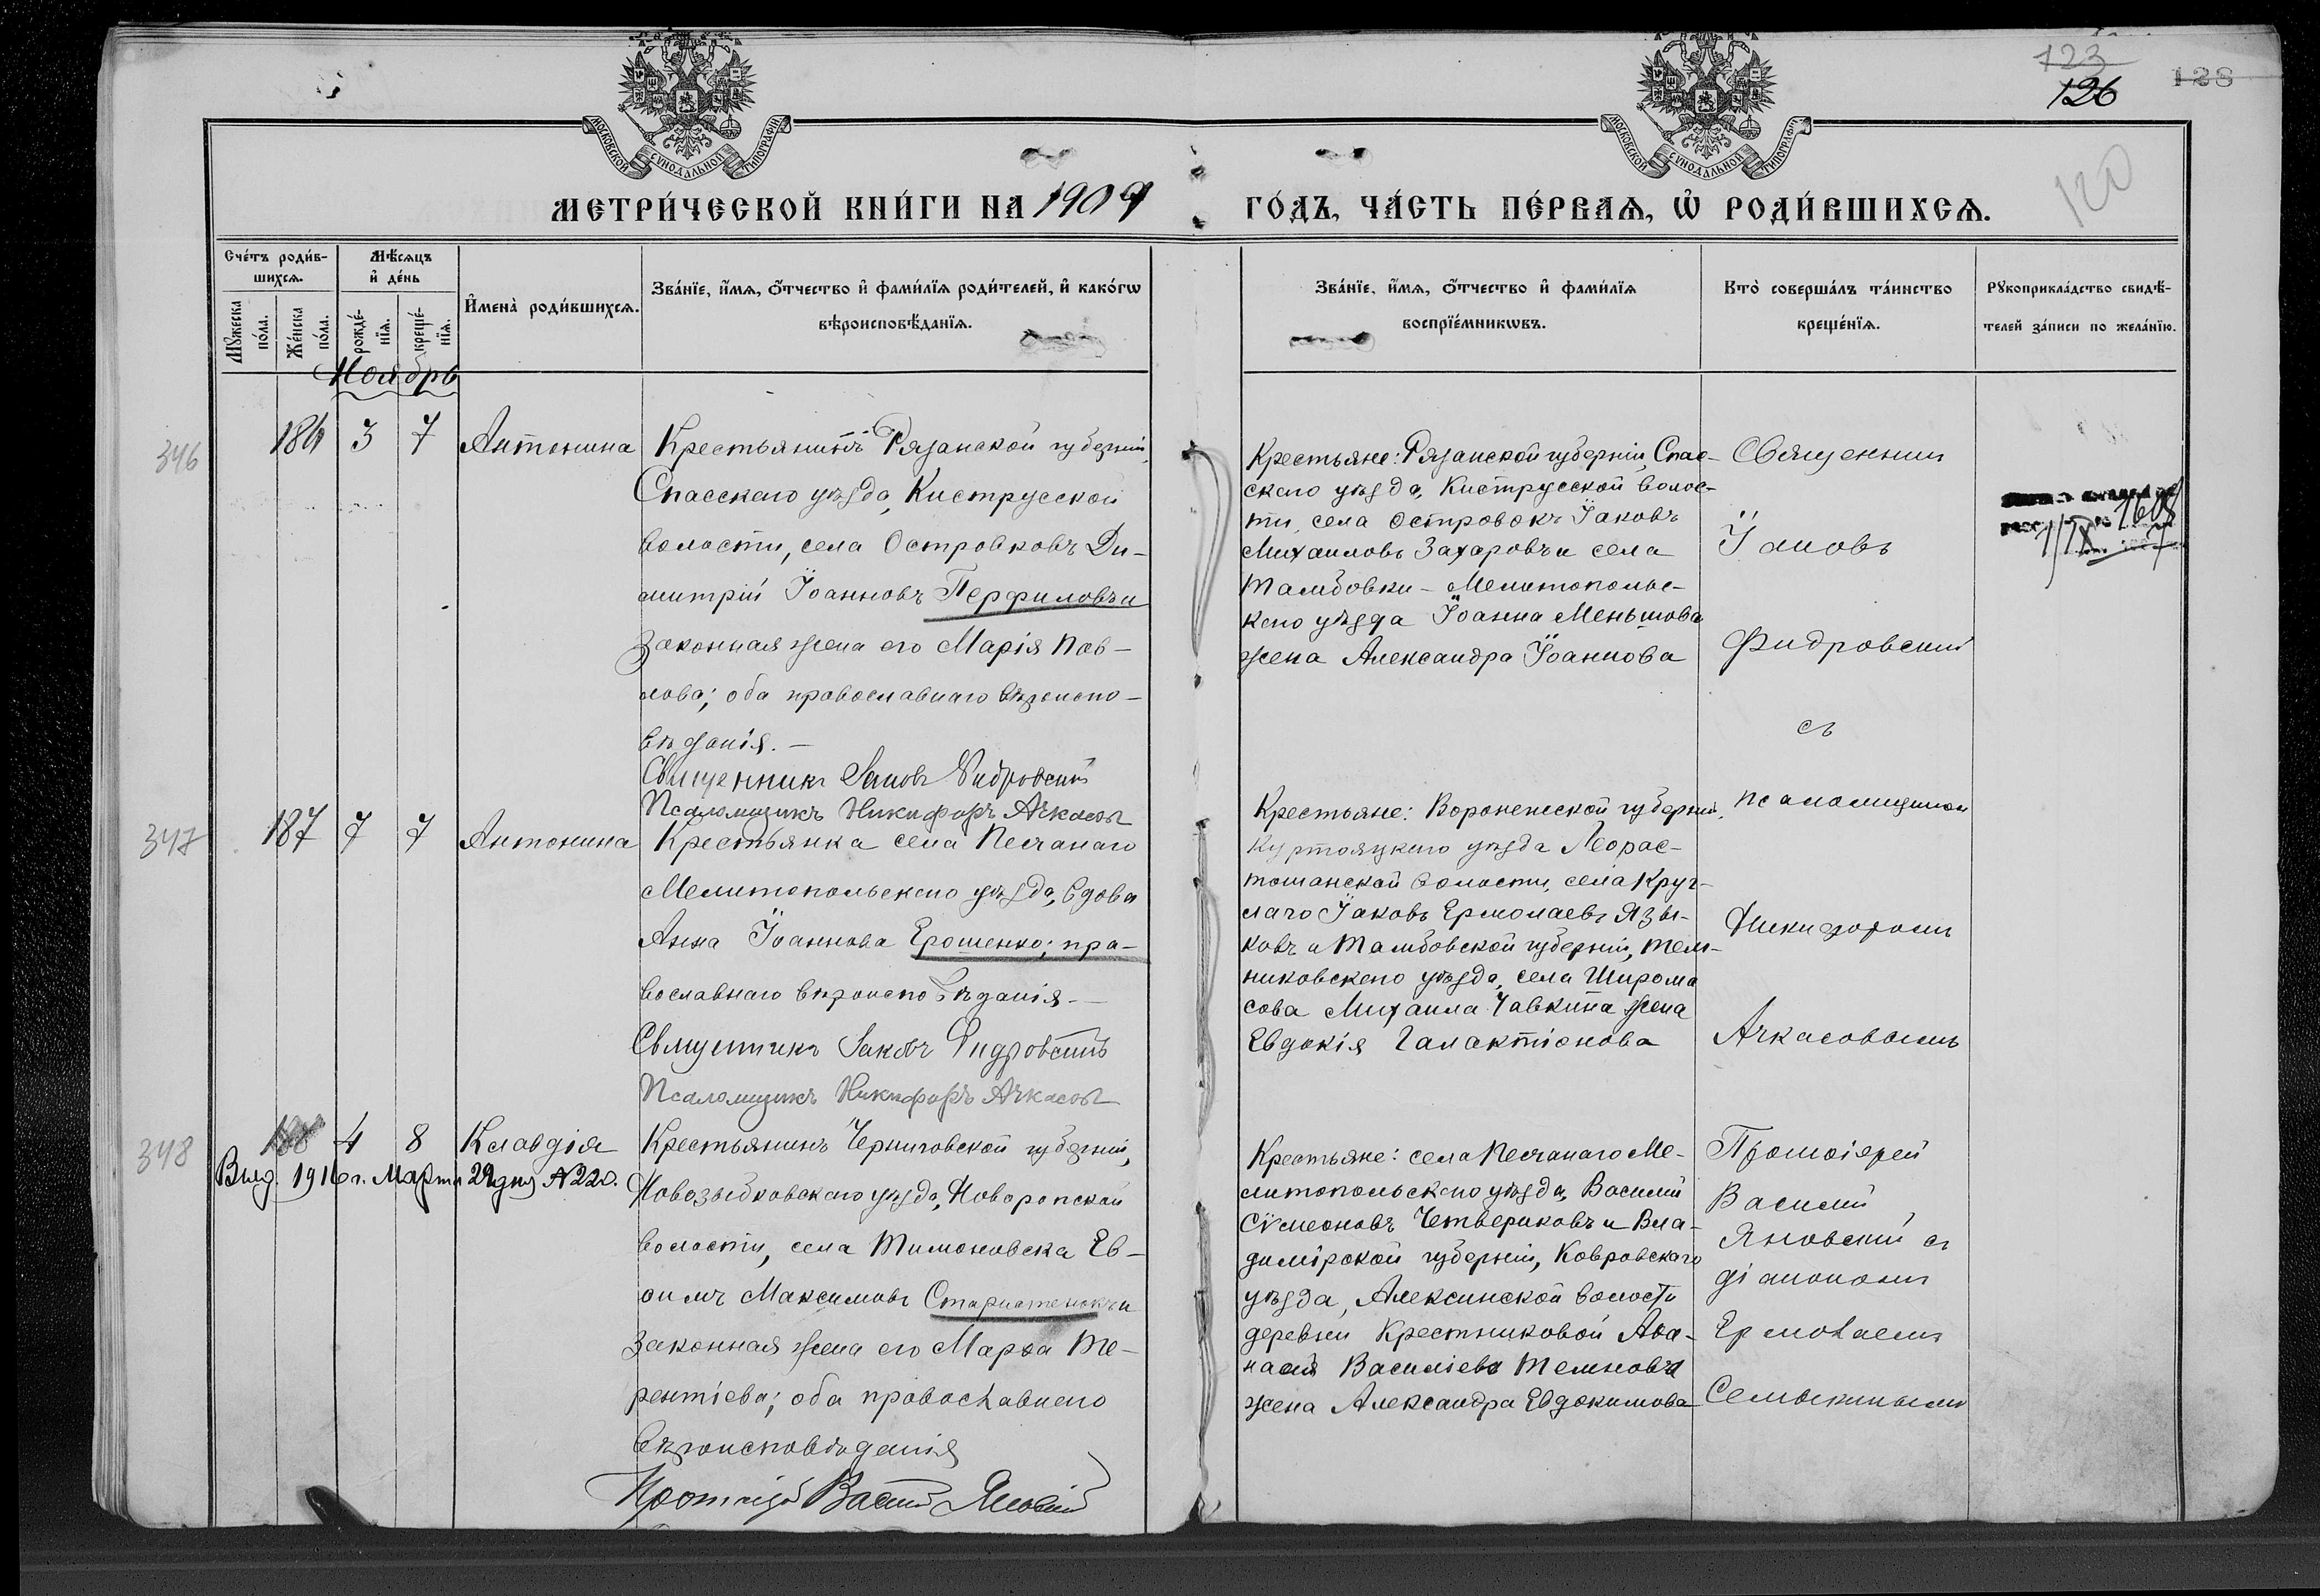 МОСКОВСКОЙ СѴНОДАЛЬНОЙ ТИПОГРАФІИ
МОСКОВСКОЙ СѴНОДАЛЬНОЙ ТИПОГРАФІИ
123
126
128
120
МЕТРИ́ЧЕСКОЙ КНИ́ГИ НА 1909
ГО́ДЪ, ЧА́СТЬ ПЕ́РВАѦ, Ѡ҆ РОДИ́ВШИХСѦ.
Сче́тъ роди́в-
шихсѧ.
Мꙋжеска по́ла.
Же́нска по́ла.
Мѣ́сѧцъ
и҆ де́нь
рожде́-
нїѧ.
креще́-
нїѧ.
И҆мена̀ роди́вшихсѧ.
Зва́нїе, и҆́мѧ, ѻ҆́тчество и҆ фами́лїѧ роди́телей, и҆ како́гѡ
вѣроисповѣ́данїѧ.
Зва́нїе, и҆́мѧ, ѻ҆́тчество и҆ фами́лїѧ
воспрїе́мникѡвъ.
Кто̀ соверша́лъ та́инство
креще́нїѧ.
Рꙋкоприкла́дство свидѣ́-
телей за́писи по жела́нїю.
Ноябрь
346
186 3 7 Антонина
Крестьянинъ Рязанской губерніи,
Спасскаго уѣзда, Киструсской
волости, села Островковъ Ди-
митрій Іоанновъ Перфиловъ и
законная жена его Марія Пав-
лова; оба православнаго вѣроиспо-
вѣданія.—
Священникъ Іаковъ Фидровскій
Псаломщикъ Никифоръ Ачкасовъ
Крестьяне: Рязанской губерніи, Спас-
скаго уѣзда, Киструсской волос-
ти, села Островокъ Іаковъ
Михаиловъ Захаровъ и села
Тамбовки - Мелитопольс-
каго уѣзда Іоанна Меньшова
жена Александра Іоаннова
Священник
Іаковъ
Фидровский
съ
псаломщиком
Никифором
Ачкасовымъ
347
187 7 7 Антонина
Крестьянка села Песчанаго
Мелитопольскаго уѣзда, вдова
Анна Іоаннова Ерошенко; пра-
вославнаго вѣроисповѣданія.—
Священникъ Іаковъ Фидровскій
Псаломщикъ Никифоръ Ачкасовъ
Крестьяне: Воронежской губерніи,
уѣзда
волости, села Круг-
лаго Іаковъ Ермолаевъ Язы-
ковъ и Тамбовской губерніи, Тем-
никовскаго уѣзда, села Широма
сова Михаила Чавкина жена
Евдокія Галактіонова
348
188 4 8 Клавдія
Выд. 1916 г. Марта 29 дня №220.
Крестьянинъ Черниговской губерніи,
Новозыбковскаго уѣзда, Новоропской
волости, села Тимоновска Ев-
фимъ Максимовъ и
законная жена его Марѳа Те-
рентіева; оба православнаго
вѣроисповѣданія
Протоіерей Василій Яновскій
Крестьяне: села Песчанаго Ме-
литопольскаго уѣзда, Василий
Сѵмеоновъ Четвериковъ и Вла-
димірской губерніи, Ковровскаго
уѣзда, Алексинской волости
деревни Крестниковой Аѳа-
насія Василіева Темнова
жена Александра Евдокимова
Протоіерей
Василий
Яновский съ
діаконом
Ермолаем
Семыкиным